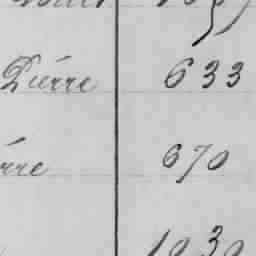 Piérre 633
rre 670
1030